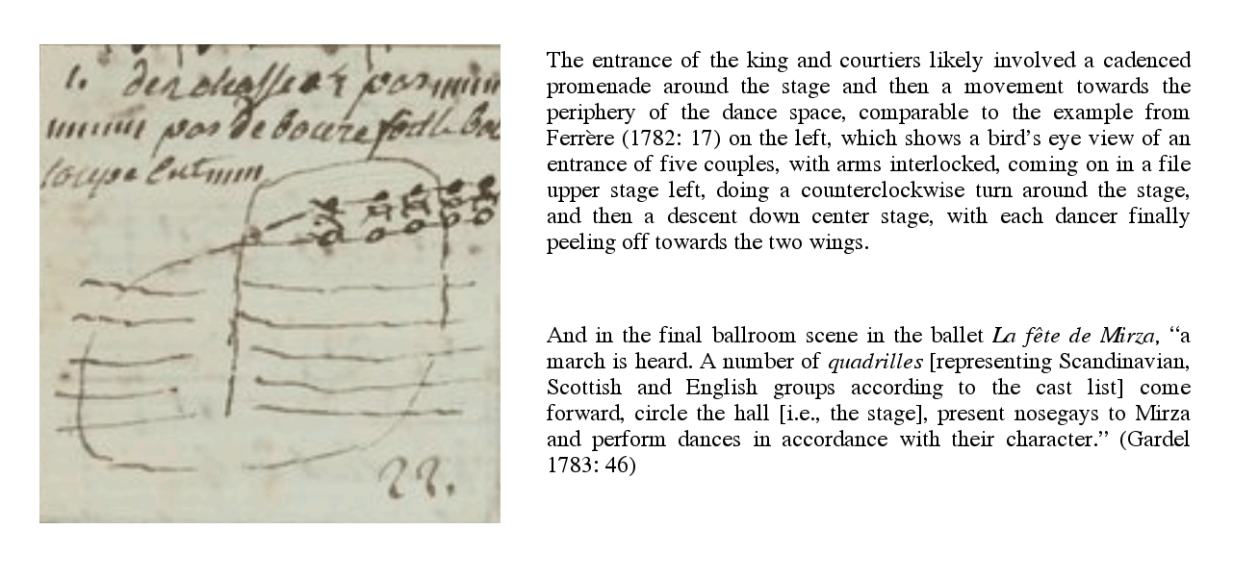 1. des chasse et pas
pas de boure
The entrance of the king and courtiers likely involved a cadenced
promenade around the stage and then a movement towards the
periphery of the dance space, comparable to the example from
Ferrère (1782: 17) on the left, which shows a bird’s eye view of an
entrance of five couples, with arms interlocked, coming on in a file
upper stage left, doing a counterclockwise turn around the stage,
and then a descent down center stage, with each dancer finally
peeling off towards the two wings.
And in the final ballroom scene in the ballet La fête de Mirza, “a
march is heard. A number of quadrilles [representing Scandinavian,
Scottish and English groups according to the cast list] come
forward, circle the hall [i.e., the stage], present nosegays to Mirza
and perform dances in accordance with their character.” (Gardel
1783: 46)
22.